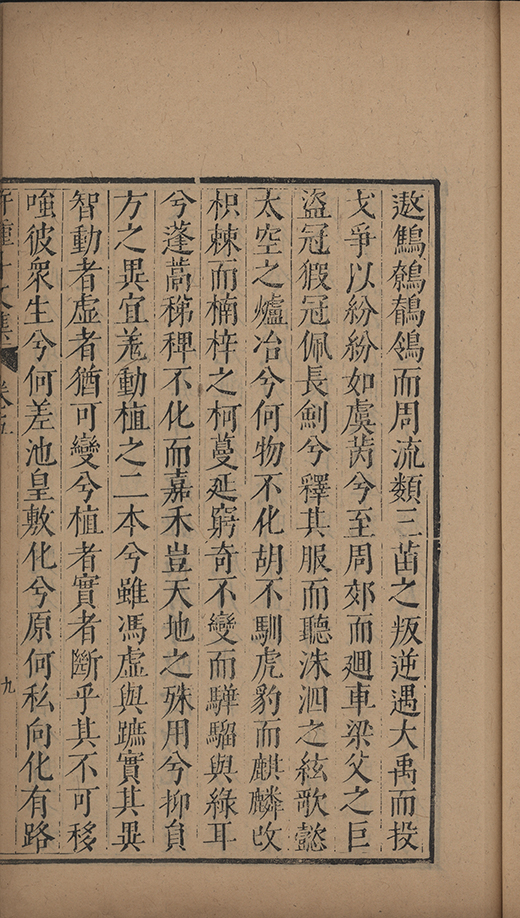 遨鷦鵪鶺鴒而周流類三苗之叛逆遇大禹而投
戈爭以紛紛如虞芮兮至周郊而迴車梁父之巨
盜冠猳冠佩長劍兮釋其服而聽洙泗之絃歌懿
太空之爐冶兮何物不化胡不馴虎豹而麒麟改
枳棘而楠梓之柯蔓延窮奇不變而驊騮與綠耳
兮蓬蒿稊稗不化而嘉禾豈天地之殊用兮抑負
方之異宜羌動植之二本兮雖馮虛與蹠實其異
智動者虛者猶可變兮植者實者斷乎其不可移
嗤彼衆生兮何差池皇敷化兮原何私向化有路
卷五
九